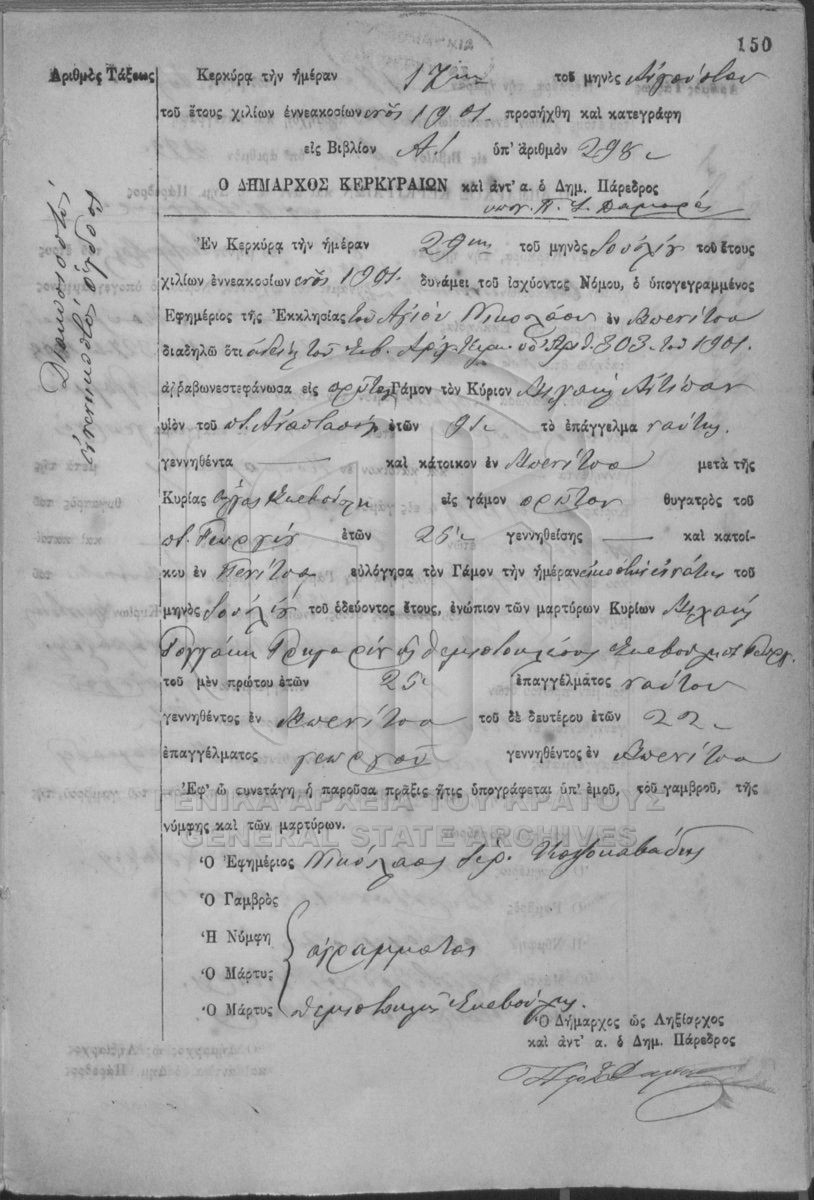 150
Ἀριθμὸς Τάξεως
Διακοσιοστὸς
ἐννενηκοστὸς ὄγδοος
Κερκύρᾳ τὴν ἡμέραν 17ην τοῦ μηνὸς Αὐγούστου
τοῦ ἔτους χιλίων ἐννεακοσίων ἑνὸς 1901. προσήχθη καὶ κατεγράφη
εἰς Βιβλίον Α' ὑπ' ἀριθμὸν 298
Ο ΔΗΜΑΡΧΟΣ ΚΕΡΚΥΡΑΙΩΝ καὶ ἀντ' α. ὁ Δημ. Πάρεδρος
υπογ. Π.
Ἐν Κερκύρᾳ τὴν ἡμέραν 29ην τοῦ μηνὸς Ἰουλίου τοῦ ἔτους
χιλίων ἐννεακοσίων ἑνὸς 1901. δυνάμει τοῦ ἰσχύοντος Νόμου, ὁ ὑπογεγραμμένος
Ἐφημέριος τῆς Ἐκκλησίας τοῦ Ἁγίου Νικολάου ἐν Μπενίτσα
διαδηλῶ ὅτι ἀδείᾳ τοῦ Σεβ. 303 τοῦ 1901.
ἀῤῥαβωνεστεφάνωσα εἰς πρῶτον Γάμον τὸν Κύριον
υἱὸν τοῦ π. Ἀναστασίου ἐτῶν τὸ ἐπάγγελμα ναύτης
γεννηθέντα — καὶ κάτοικον ἐν Μπενίτσα μετὰ τῆς
Κυρίας Ὄλγας εἰς γάμον πρῶτον θυγατρὸς τοῦ
π. Γεωργίου ἐτῶν 25 γεννηθείσης — καὶ κατοί-
κου ἐν Πενίτσα εὐλόγησα τὸν Γάμον τὴν ἡμέραν εἰκοστὴν ἐννάτην τοῦ
μηνὸς Ἰουλίου τοῦ ὁδεύοντος ἔτους, ἐνώπιον τῶν μαρτύρων Κυρίων Μιχαὴλ
Γρηγορίου Θεμιστοκλέους π. Γεωργ.
τοῦ μὲν πρώτου ἐτῶν 25 ἐπαγγέλματος ναύτου
γεννηθέντος ἐν Μπενίτσα τοῦ δὲ δευτέρου ἐτῶν 22
ἐπαγγέλματος γεωργοῦ γεννηθέντος ἐν Μπενίτσα
Ἐφ' ᾧ συνετάγη ἡ παροῦσα πρᾶξις ἥτις ὑπογράφεται ὑπ' ἐμοῦ, τοῦ γαμβροῦ, τῆς
νύμφης καὶ τῶν μαρτύρων.
ΓΕΝΙΚΑ ΑΡΧΕΙΑ ΤΟΥ ΚΡΑΤΟΥΣ
GENERAL STATE ARCHIVES
Ὁ Ἐφημέριος Νικόλαος Ἱερ.
Ὁ Γαμβρὸς
Ἡ Νύμφη ἀγράμματος
Ὁ Μάρτυς
Ὁ Μάρτυς Θεμιστοκλῆς
Ὁ Δήμαρχος ὡς Ληξίαρχος
καὶ ἀντ' α. ὁ Δημ. Πάρεδρος